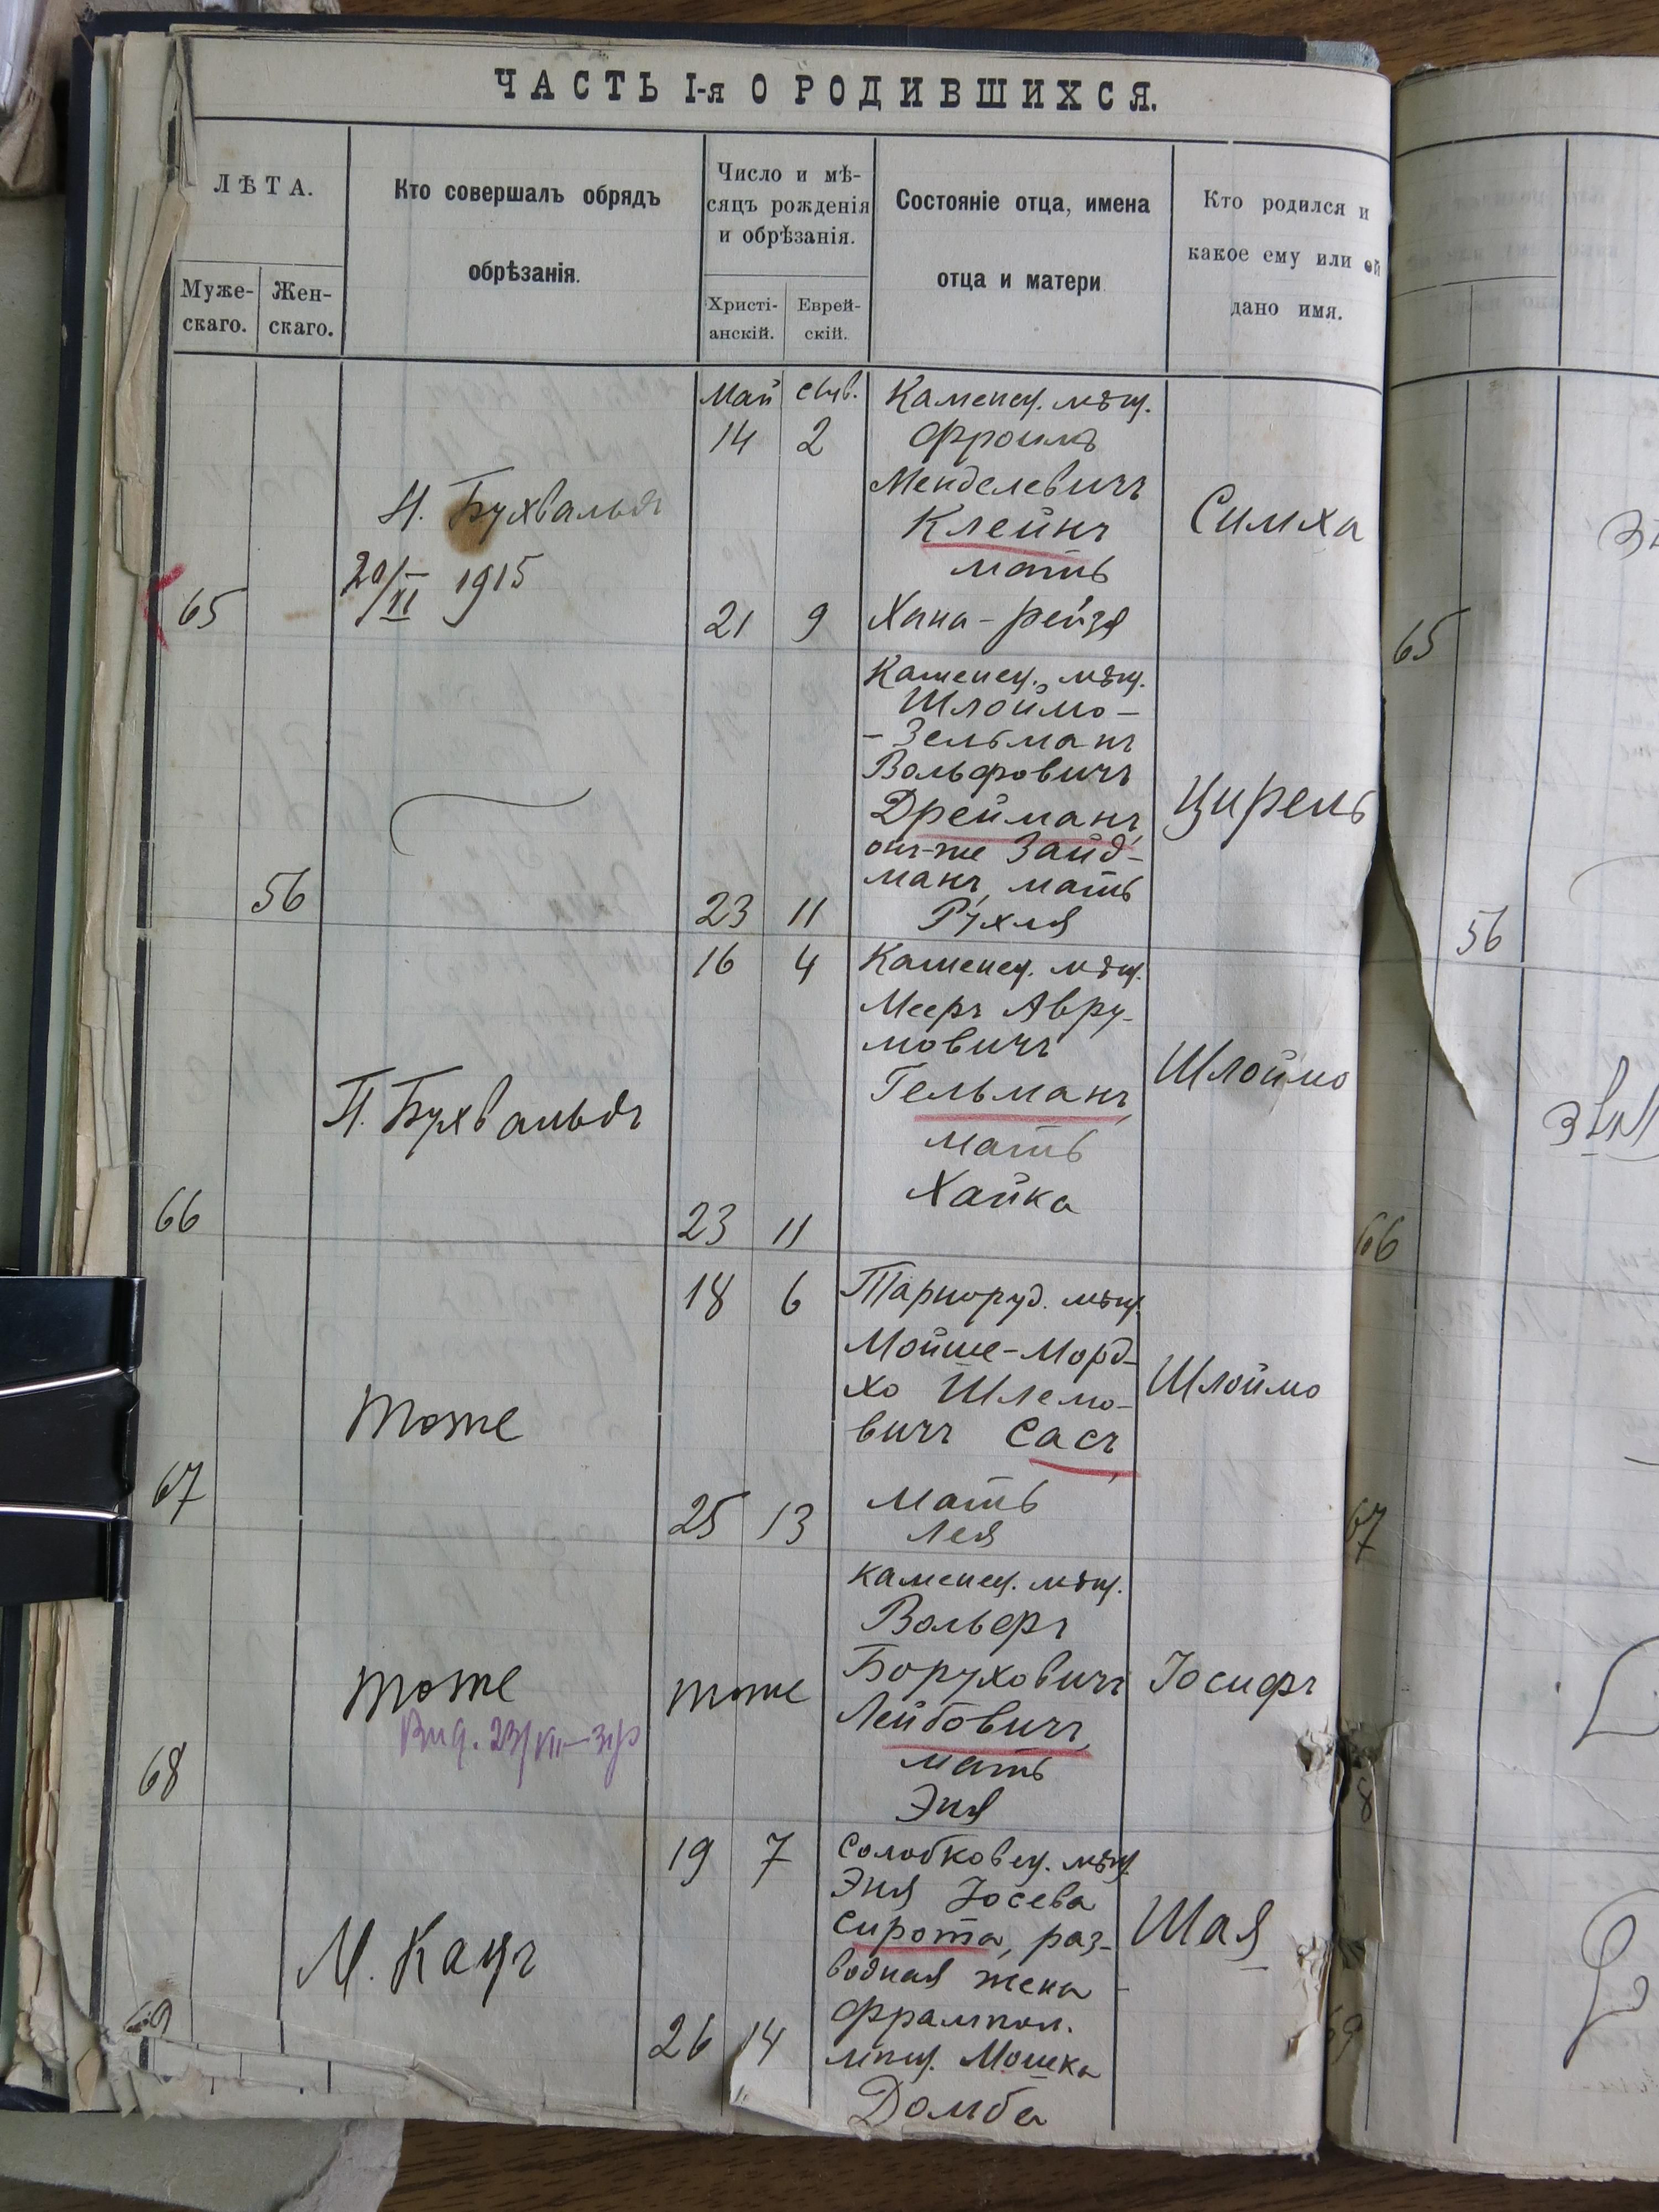 ЧАСТЬ I-я О РОДИВШИХСЯ.
ЛѢТА.
Муже-
скаго.
Жен-
скаго.
Кто совершалъ обрядъ
обрѣзанія.
Число и мѣ-
сяцъ рожденія
и обрѣзанія.
Христі-
анскій.
Еврей-
скій.
Состояніе отца, имена
отца и матери
Кто родился и
какое ему или ей
дано имя.
Май
14 2
Каменец. мѣщ.
Фроимъ
Менделевичъ
Клейнъ
мать
Хана-Рейзя
Н. Бухвальдъ
20/VI 1915
65
21 9
Симха
65
Каменец. мѣщ.
Шлоймо-
-Зельманъ
Вольфовичъ
Дрейманъ,
онъ-же Зайд-
манъ, мать
Рухля
56
23 11
Цирель
56
16 4
Каменец. мѣщ.
Мееръ Авру-
мовичъ
Гельманъ,
мать
Хайка
Н. Бухвальдъ
66
23 11
Шлоймо
66
18 6
Тарноруд. мѣщ.
Мойше-Морд-
хо Шлемо-
вичъ Сасъ,
мать
Лея
тоже
67
25 13
Шлоймо
67
каменец. мѣщ.
Вольфъ
Боруховичъ
Лейбовичъ,
мать
Эня
тоже
тоже
68
Іосифъ
8
19 7
Солобковец. мѣщ.
Эня Іосева
Сирота, раз-
водная жена
Фрампол.
мѣщ. Мошка
Домба
М. Кацъ
69
26 14
Шая
69